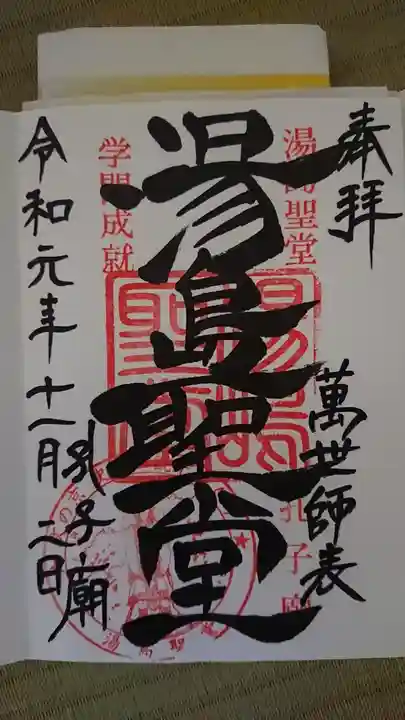 奉拝
萬世師表
湯島聖堂
孔子廟
湯島聖堂
学問成就
孔子廟
令和元年十一月二日